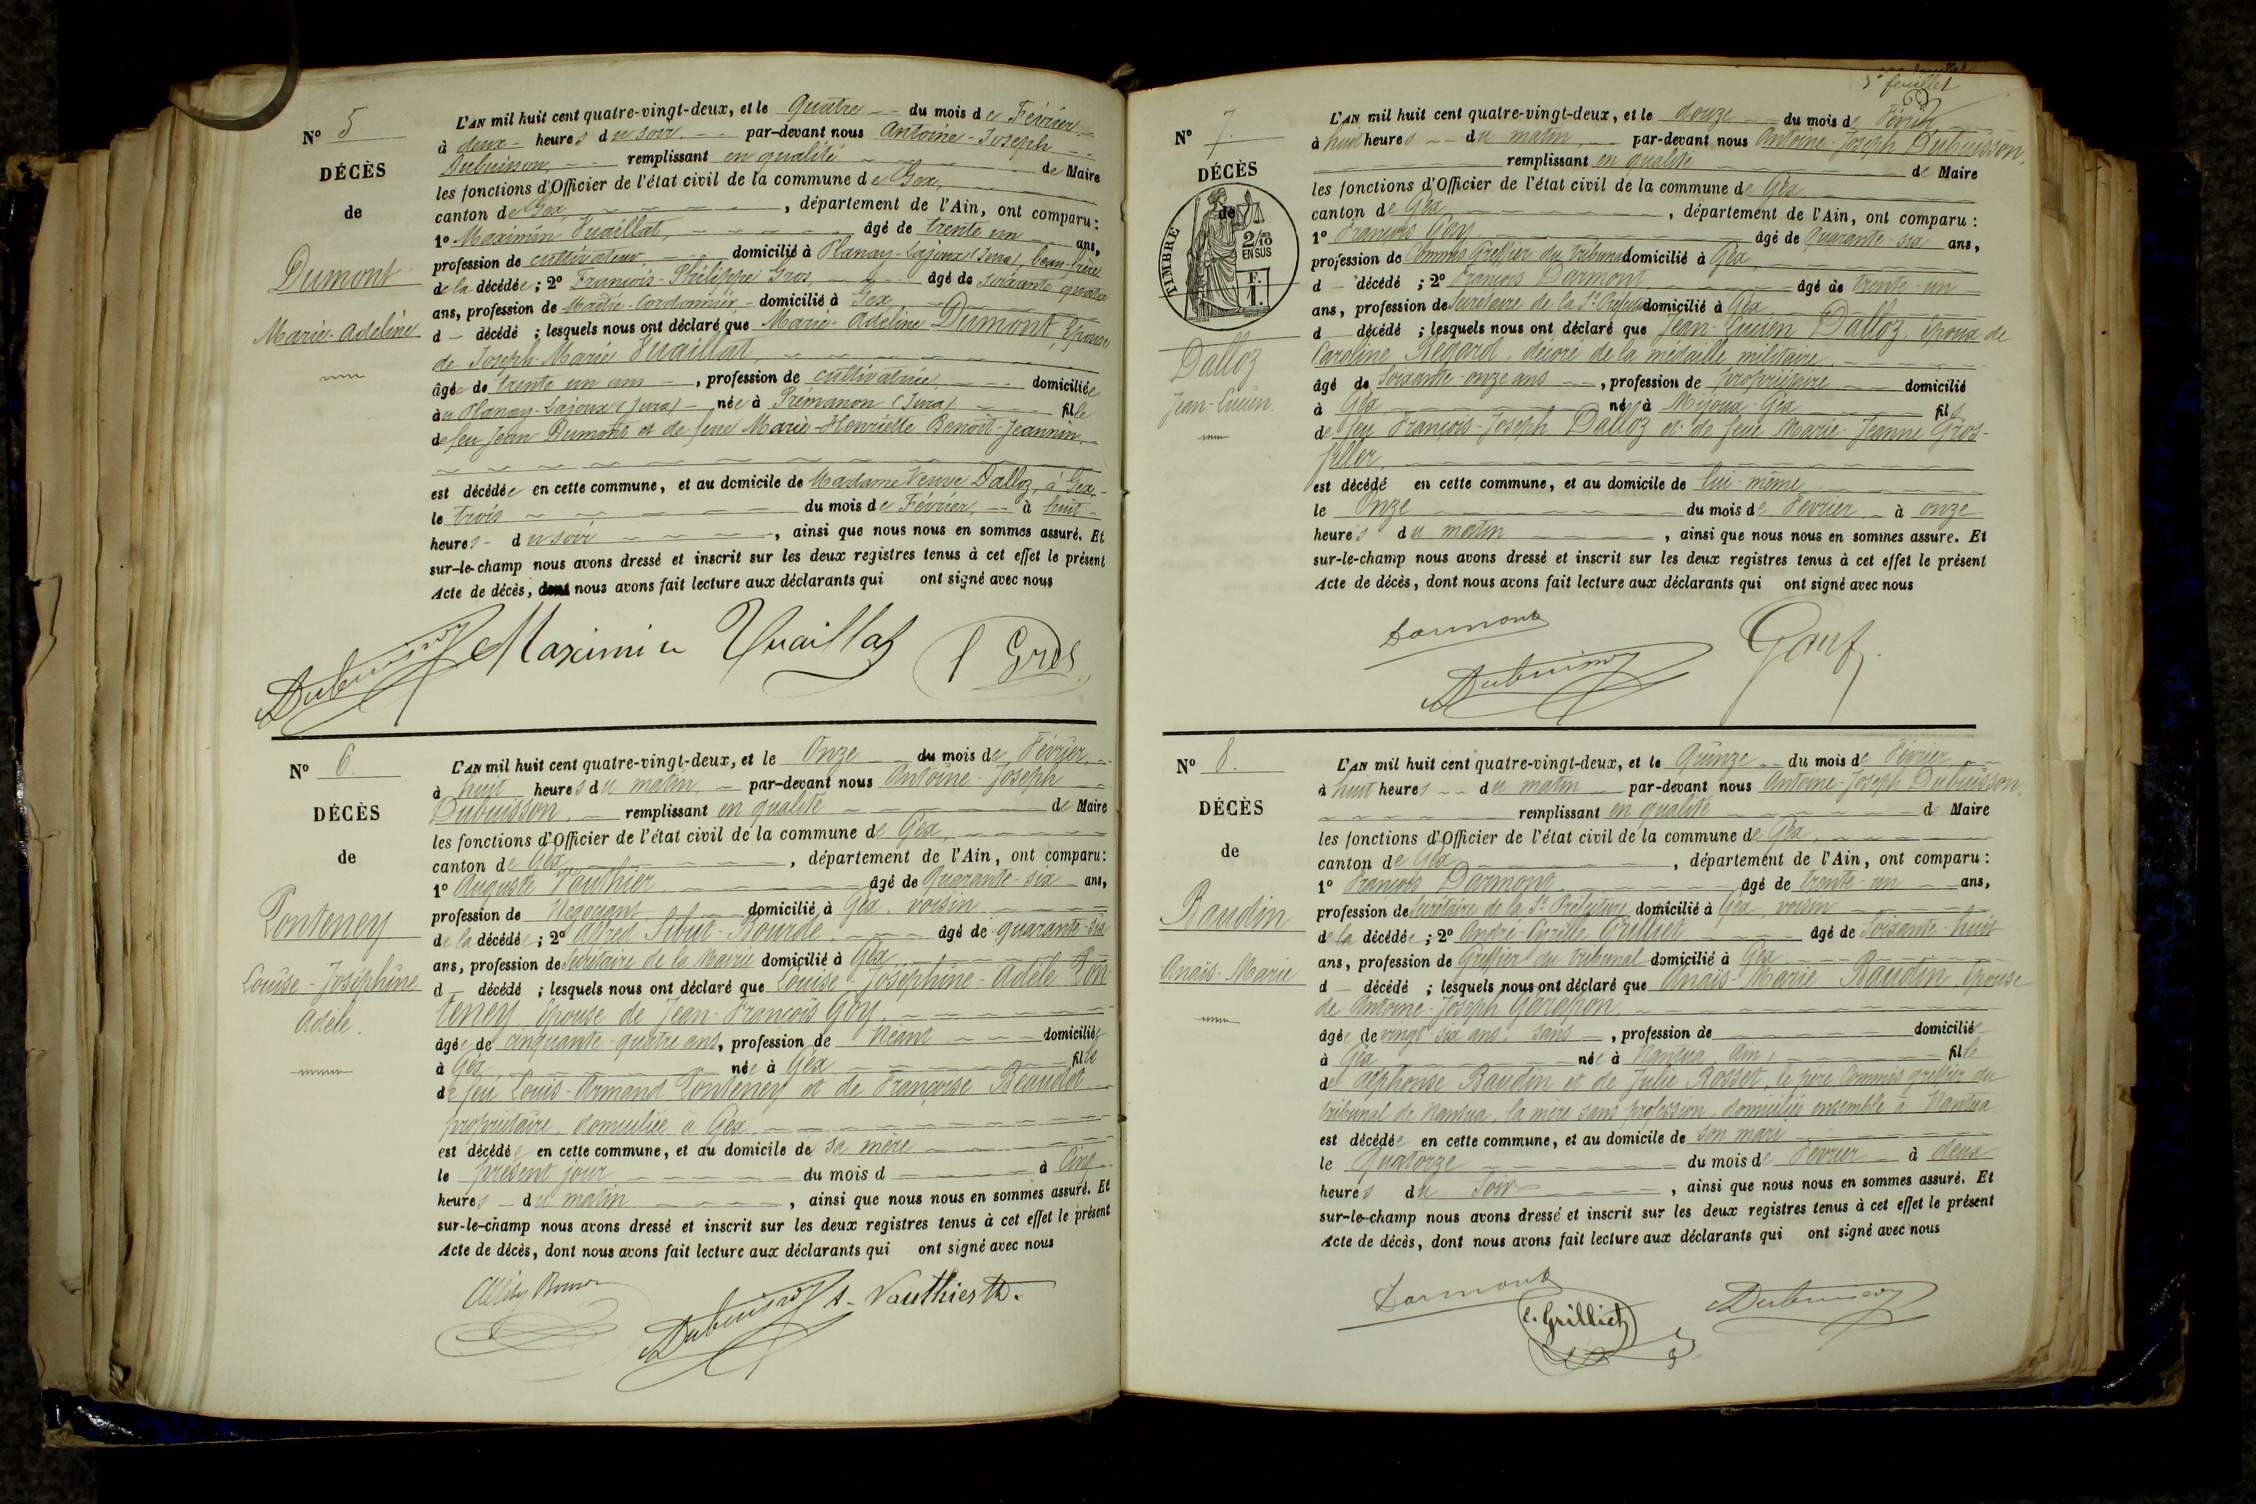 N° 5
DÉCÈS
de
Dumont
Marie-Adeline
L'AN mil huit cent quatre-vingt-deux, et le Quatre du mois de Février
à deux heures du soir par-devant nous Antoine-Joseph
Dubuisson, remplissant en qualité de Maire
les fonctions d'Officier de l'état civil de la commune de Gex,
canton de Gex, département de l'Ain, ont comparu :
1° Maximin Vuaillat, âgé de trente un ans,
profession de cultivateur, domicilié à Planay-Lajoux (Jura), beau-frère
de la décédée ; 2° François-Philippe Gros, âgé de soixante quatre
ans, profession de Maître-Cordonnier domicilié à Gex,
d décédé ; lesquels nous ont déclaré que Marie-Adeline Dumont, Epouse
de Joseph-Marie Vuaillat,
âgée de trente un ans, profession de cultivatrice, domiciliée
au Planay-Lajoux (Jura) née à Prémanon (Jura) fille
de feu Jean Dumont et de feue Marie-Henriette Benoit-Jeannin,
est décédée en cette commune, et au domicile de Madame Veuve Dalloz, à Gex,
le trois du mois de Février, à huit
heures du soir, ainsi que nous nous en sommes assuré. Et
sur-le-champ nous avons dressé et inscrit sur les deux registres tenus à cet effet le présent
Acte de décès, dont nous avons fait lecture aux déclarants qui ont signé avec nous
Dubuisson Maximin Vuaillat Gros
N° 6.
DÉCÈS
de
Ponteney
Louise-Joséphine
Adèle.
L'AN mil huit cent quatre-vingt-deux, et le Onze du mois de Février,
à huit heures du matin, par-devant nous Antoine-Joseph
Dubuisson, remplissant en qualité de Maire
les fonctions d'Officier de l'état civil de la commune de Gex,
canton de Gex, département de l'Ain, ont comparu :
1° Auguste Vauthier âgé de Quarante-six ans,
profession de Négociant, domicilié à Gex, voisin
de la décédée ; 2° Alfred Sibut-Bourde, âgé de quarante-six
ans, profession de Secrétaire de la Mairie domicilié à Gex,
d décédé ; lesquels nous ont déclaré que Louise-Joséphine-Adèle Pon
teney Epouse de Jean-François Goy,
âgée de cinquante-quatre ans, profession de Néant domiciliée
à Gex, née à Gex fille
de feu Louis-Armand Ponteney et de Françoise Beaudet
propriétaire, domiciliée à Gex
est décédée en cette commune, et au domicile de sa mère
le présent jour du mois d à Cinq
heures du matin, ainsi que nous nous en sommes assuré. Et
sur-le-champ nous avons dressé et inscrit sur les deux registres tenus à cet effet le présent
Acte de décès, dont nous avons fait lecture aux déclarants qui ont signé avec nous
Dubuisson A. Vauthier
5e feuillet
N° 7.
DÉCÈS
de
TIMBRE
2/10
EN SUS
F.
1.
Dalloz
Jean-Lucien.
L'AN mil huit cent quatre-vingt-deux, et le douze du mois de Février
à huit heures du matin, par-devant nous Antoine-Joseph Dubuisson,
remplissant en qualité de Maire
les fonctions d'Officier de l'état civil de la commune de Gex
canton de Gex, département de l'Ain, ont comparu :
1° François Gay âgé de Quarante-six ans,
profession de Commis Greffier du tribunal domicilié à Gex,
d décédé ; 2° François Darmont âgé de trente-un
ans, profession de Secrétaire de la Sr Préfecture domicilié à Gex,
d décédé ; lesquels nous ont déclaré que Jean-Lucien Dalloz, Epoux de
Caroline Regard, décoré de la médaille militaire,
âgé de Soixante-onze ans, profession de propriétaire domicilié
à Gex né à Mijoux-Gex fils
de feu François-Joseph Dalloz et de feue Marie-Jeanne Gros-
fillex,
est décédé en cette commune, et au domicile de lui-même
le Onze du mois de Février à onze
heures du matin, ainsi que nous nous en sommes assuré. Et
sur-le-champ nous avons dressé et inscrit sur les deux registres tenus à cet effet le présent
Acte de décès, dont nous avons fait lecture aux déclarants qui ont signé avec nous
Darmont
Dubuisson
N° 8.
DÉCÈS
de
Baudin
Anaïs-Marie
L'AN mil huit cent quatre-vingt-deux, et le Quinze du mois de Février
à huit heures du matin par-devant nous Antoine-Joseph Dubuisson,
remplissant en qualité de Maire
les fonctions d'Officier de l'état civil de la commune de Gex,
canton de Gex, département de l'Ain, ont comparu :
1° François Darmont, âgé de trente-un ans,
profession de Secrétaire de la Sr Préfecture domicilié à Gex, voisin
de la décédée ; 2° André-Cyrille Grilliet âgé de Soixante-huit
ans, profession de Greffier du tribunal domicilié à Gex
d décédé ; lesquels nous ont déclaré que Anaïs-Marie Baudin, Epouse
de Antoine-Joseph Garapon,
âgée de vingt-six ans, sans, profession de domiciliée
à Gex née à Nantua, Ain, fille
de Alphonse Baudin et de Julie Rosset, le père Commis greffier du
tribunal de Nantua, la mère sans profession, domiciliés ensemble à Nantua
est décédée en cette commune, et au domicile de son mari
le Quatorze du mois de Février à deux
heures du Soir, ainsi que nous nous en sommes assuré. Et
sur-le-champ nous avons dressé et inscrit sur les deux registres tenus à cet effet le présent
Acte de décès, dont nous avons fait lecture aux déclarants qui ont signé avec nous
Darmont C. Grilliet Dubuisson